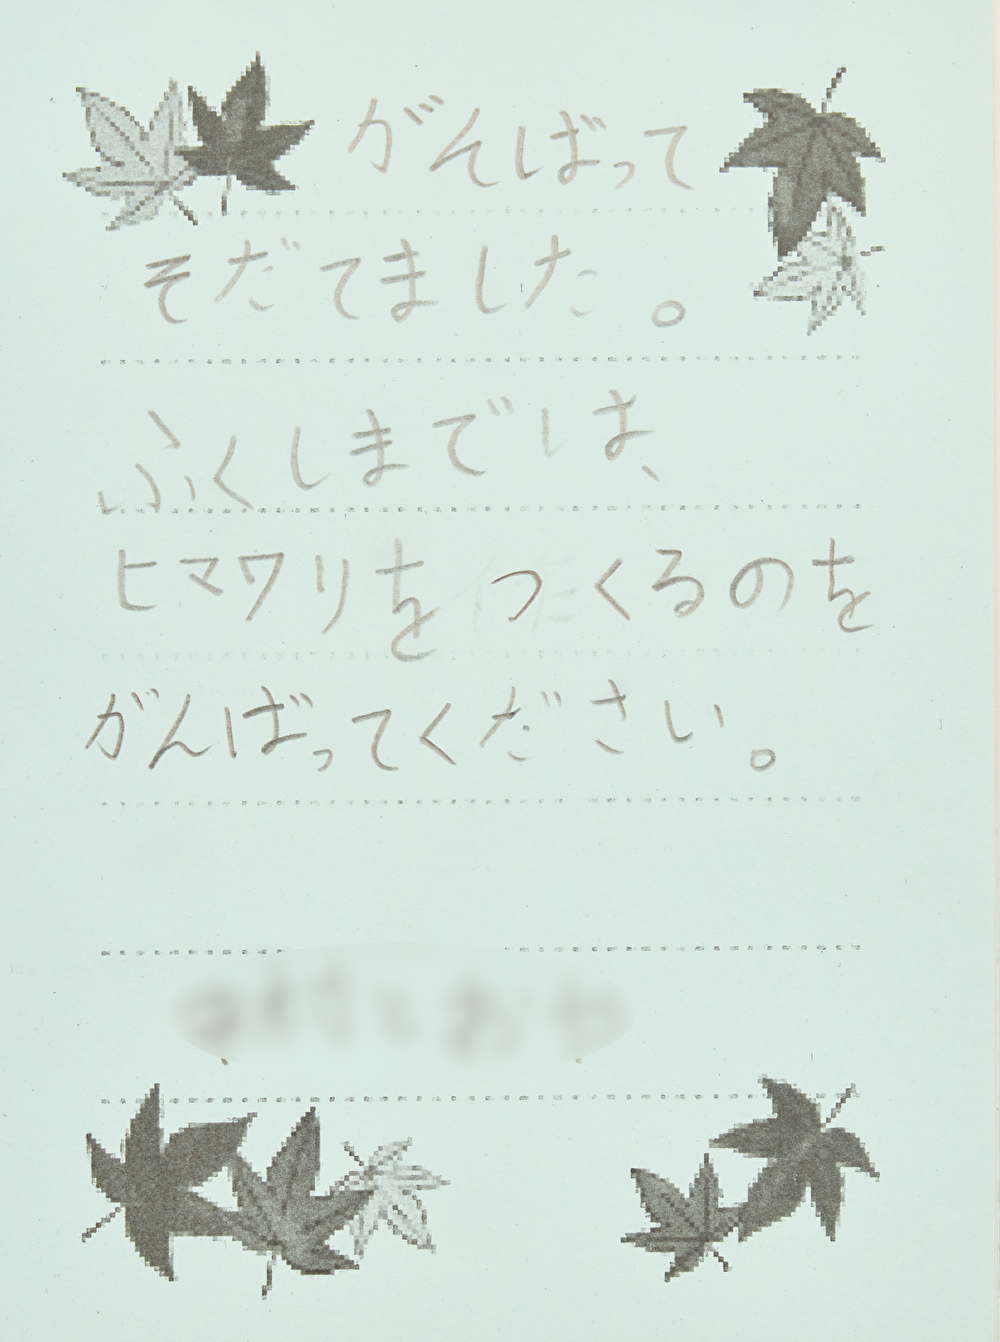 がんばって
そだてました。
ふくしまでは、
ヒマワリをつくるのを
がんばってください。